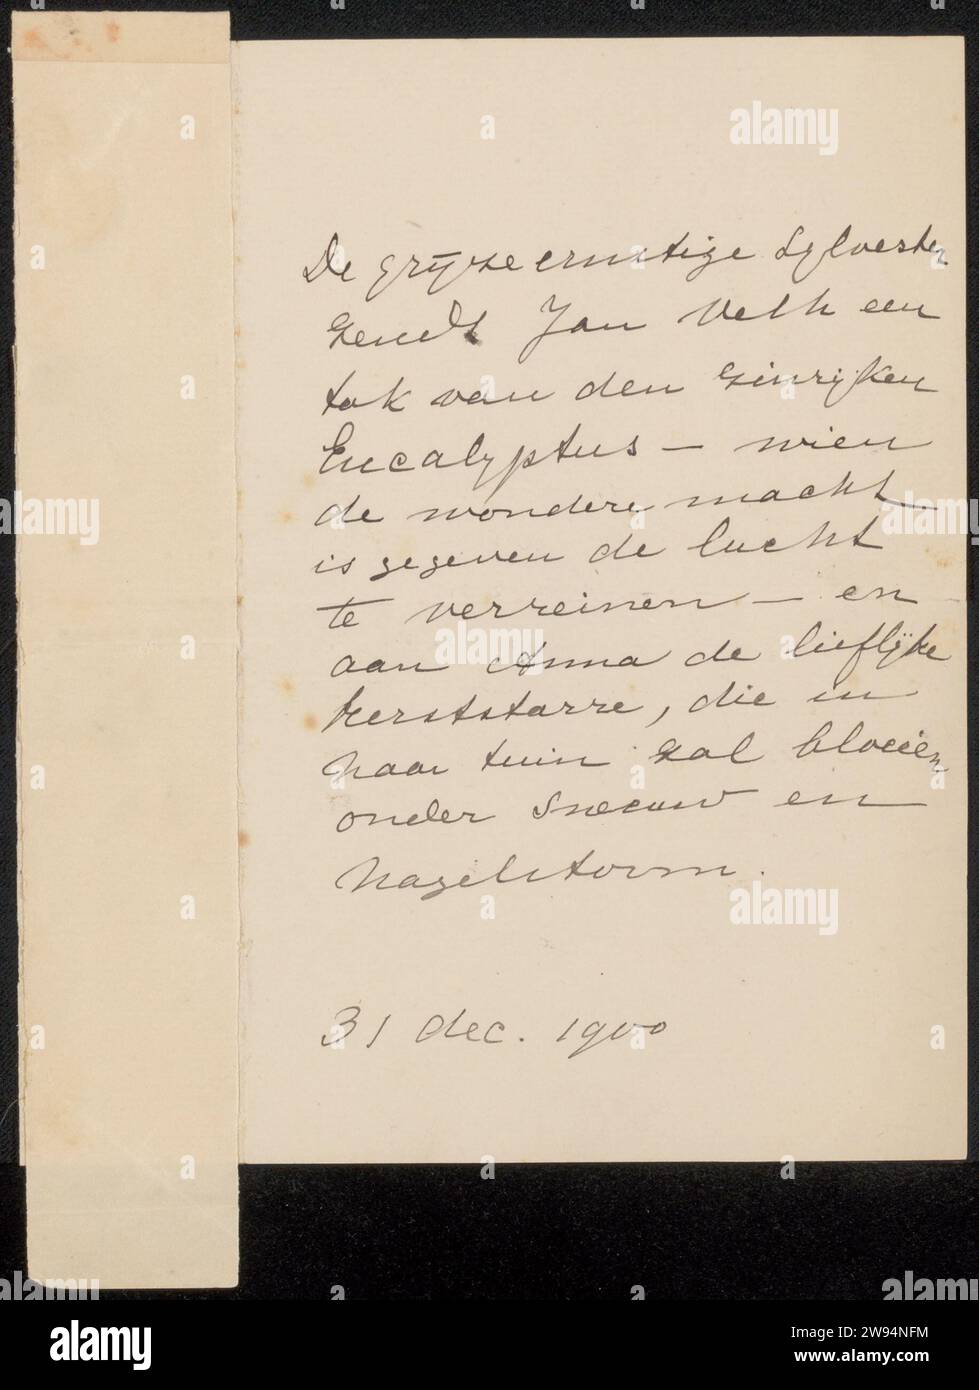 De grijze ernstige Sylvester
zendt Jan Veth een
tak van den zinrijken
Eucalyptus – wien
de wondere macht
is gegeven de lucht
te verreinen – en
aan Anna de lieflijke
kerststarre, die in
haar tuin zal bloeien
onder sneeuw en
hagelstorm.
31 dec. 1900
alamy
alamy
alamy
Image ID: 2W94NFM
www.alamy.com